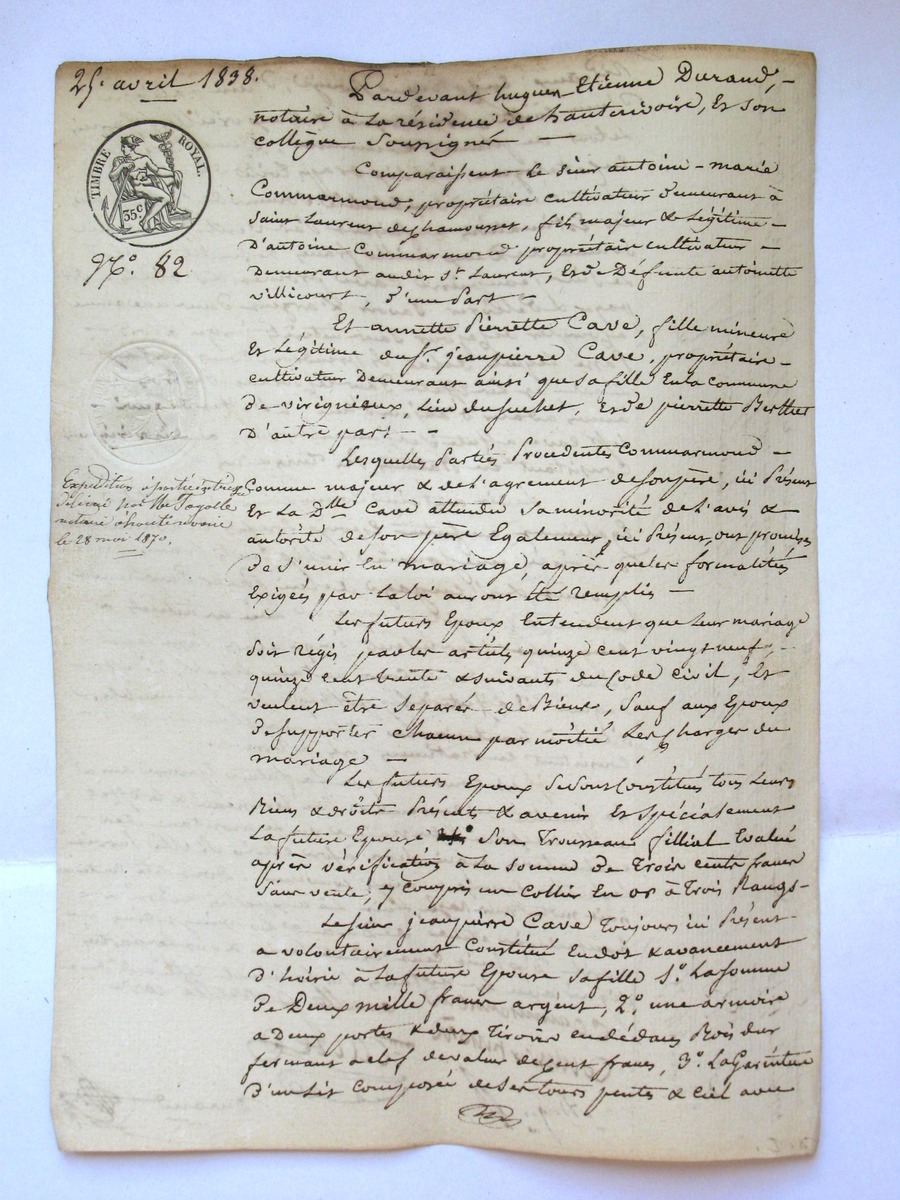 25. avril 1838.
TIMBRE ROYAL.
35c
No. 82
Expédition à partie entière
délivré par Me Fayolle
notaire à hauterivoire
le 28 mai 1870.
Pardevant hugues Etienne Durand,-
notaire à La résidence de hauterivoire, Et son
collègue Soussignés —
Comparaissent Le sieur antoine-marie
Commarmond, propriétaire cultivateur demeurant à
Saint Laurent de chamousset, fils majeur & Légitime-
D'antoine Commarmond propriétaire cultivateur-
Demeurant audit st. Laurent, Et de Défunte antoinette
Villicourt, d'une Part-
Et annette Pierrette Cave, fille mineure
Et Légitime du sr. jeanpierre Cave, propriétaire-
cultivateur Demeurant ainsi que sa fille En la Commune
de viriqneux, Lieu du suchet, Et de pierrette Berthet
D'autre part - -
Lesquelles Parties Procedentes Commarmond -
Comme majeur & de L'agrement de son père, ici Présent
Et La Dlle Cave attendu Sa minorité de L'avis &
autorité de Son père Egalement ici Présent, ont promis
de S'unir En mariage, après que les formalités
Exigées par La loi auront été remplies —
Les futurs Epoux Entendent que Leur mariage
Soit régis par les articles quinze cent vingt neuf,-
quinze cent trente & suivants du Code Civil, Et
veulent être Separés de Biens, Sauf aux Epoux
de supporter chacun par moitié Les Charges du
mariage —
Les futurs Epoux Se Sont Constitués tous Leurs
Biens & droits Présents & avenir Et spécialement
La future Epouse Son Trousseau fillial Evalué
après vérification à La somme de Trois cents francs
Sans vente, y Compris un Collier En or à Trois Rangs-
Le Sieur jeanpierre Cave Toujours ici Présent
a volontairement Constitué En dot & avancement
d'hoirie à La future Epouse Sa fille 1o. La Somme
De Deux mille francs argent, 2o. une armoire
a Deux portes & deux Tiroirs en dédans Bois dur
fermant a clef de valeur de Cent francs, 3o. La Garniture
D'un Lit Composée de Ses tours pentes & Ciel avec